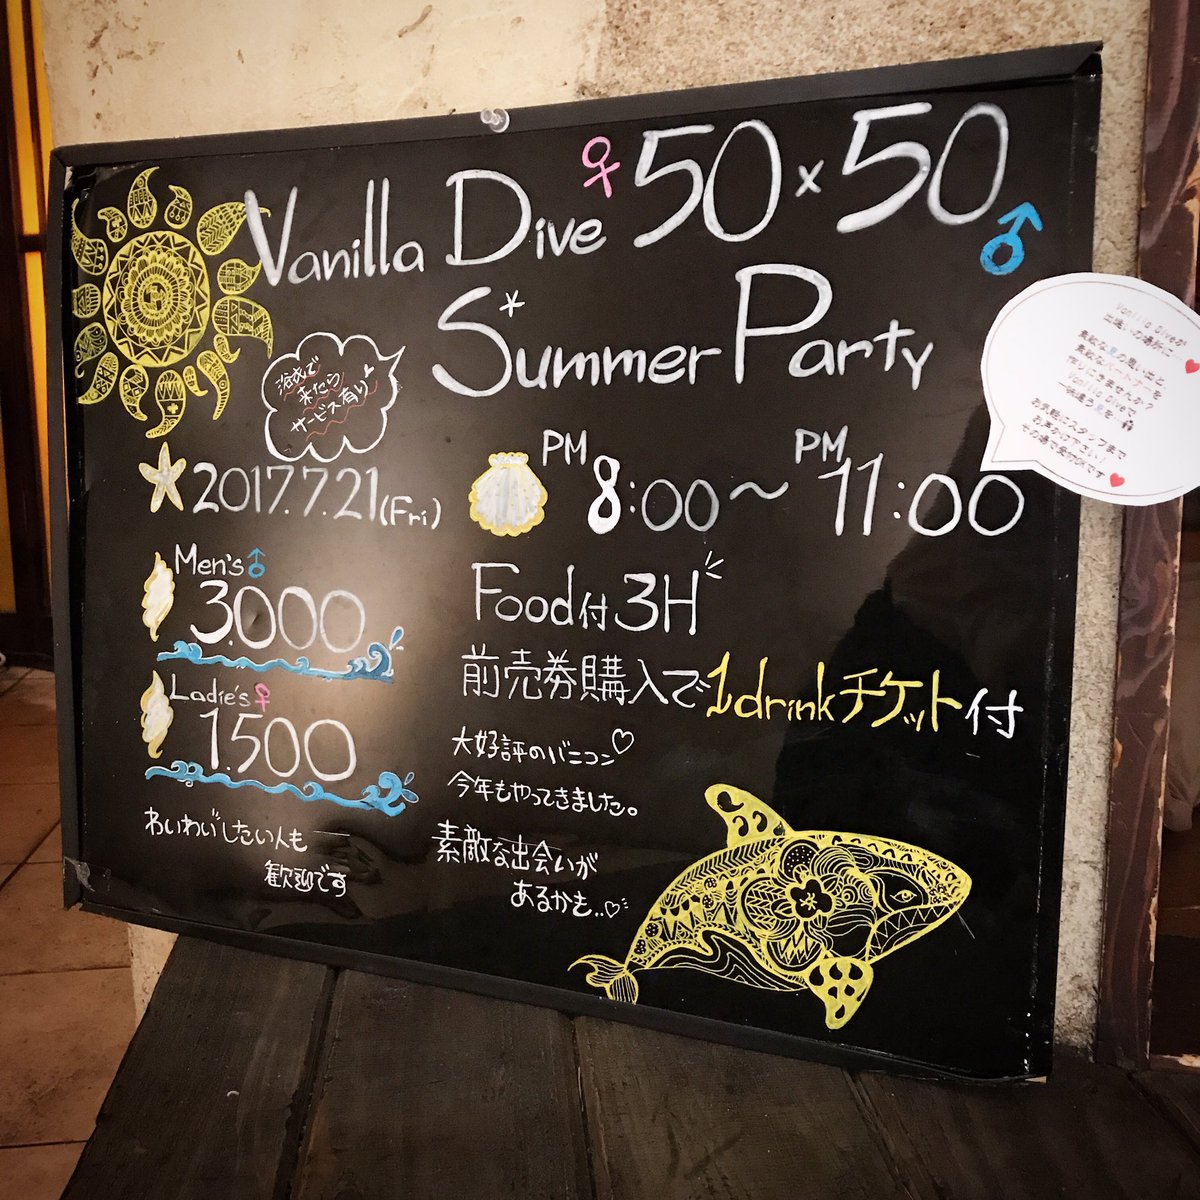 Vanilla Dive ♀50×50♂
Summer Party
浴衣で
来たら
サービス有り♪
2017.7.21(Fri)
PM 8:00～PM 11:00
Men's♂
3.000
Ladie's♀
1.500
わいわいしたい人も
歓迎です
Food付 3H
前売券購入で1drinkチケット付
大好評のバニコン♡
今年もやってきました。
素敵な出会いが
あるかも..♡
Vanilla Diveが
出逢いの場所に
素敵な夏の思い出と
素敵なパートナーを
作りにきませんか？
Vanilla Diveで
一味違う夏を
お気軽にスタッフまで
お声かけ下さい！
その場で受付所です